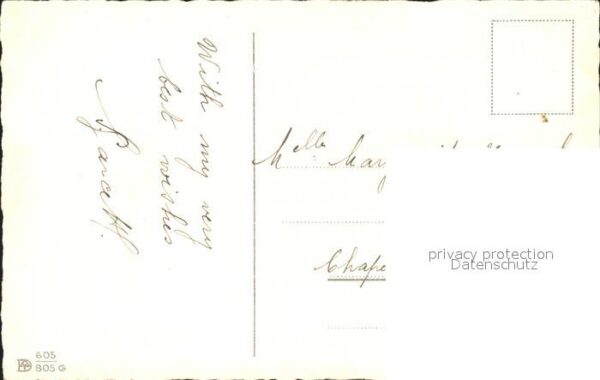 With my very
best wishes
Mlle
Chape
privacy protection
Datenschutz
605
805 G